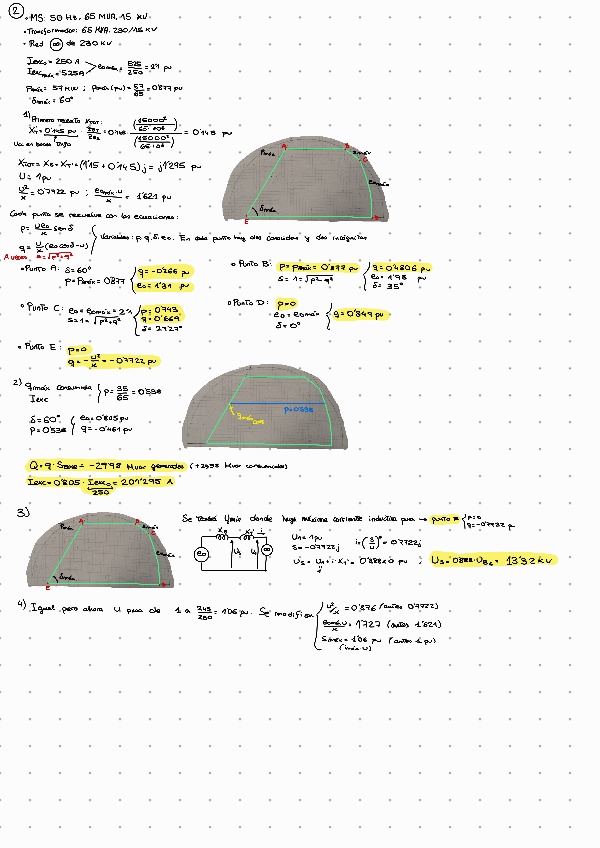 2
• MS: 50 Hz, 65 MVA, 15 kV.
• Transformador: 65 MVA, 230/15 kV
• Red ∞ de 230 kV
Iexc0 = 250 A
Iexcmáx = 525 A
e0máx = 525/250 = 2'1 pu
Pmáx = 57 MW ; pmáx (pu) = 57/65 = 0'877 pu
δmáx = 60°
1) Primero reacto XTOT:
XT = 0'145 pu · ZBT/ZBG = 0'145 · (15000²/65·10⁶)/(15000²/65·10⁶) = 0'145 pu
XTOT = XS + XT' = (1'15 + 0'145)j = j1'295 pu
U = 1 pu
U²/X = 0'7722 pu ; e0máx·U/X = 1'621 pu
Pmáx
A
B
Smáx
C
e0máx
δmáx
E
Cada punto se resuelve con las ecuaciones:
p = U e0/X sen δ
q = U/X (e0 cos δ - U)
A veces: s = √p²+q²
Variables: p, q, δ, e0. En cada punto hay dos conocidas y dos incógnitas
• Punto A: δ = 60°
p = Pmáx = 0'877
q = -0'266 pu
e0 = 1'31 pu
• Punto B: p = Pmáx = 0'877 pu
s = 1 = √p²+q²
q = 0'4806 pu
e0 = 1'98 pu
δ = 35°
• Punto C: e0 = e0máx = 2'1
s = 1 = √p²+q²
p = 0'743
q = 0'669
δ = 27'27°
• Punto D: p = 0
e0 = e0máx
δ = 0°
q = 0'849 pu
• Punto E: p = 0
q = -U²/X = -0'7722 pu
2) qmáx consumida
Iexc
p = 35/65 = 0'538
δ = 60°
p = 0'538
e0 = 0'805 pu
q = -0'461 pu
p=0'538
qmáx cons
Q = q · Sbase = -29'98 MVAr generados (+29'98 MVAr consumidos)
Iexc = 0'805 · Iexc0 = 201'295 A
250
3)
Pmáx
A
B
Smáx
C
e0máx
δmáx
E
Se tendrá Umín donde haya máxima corriente inductiva pura → punto E
p=0
q=-0'7722 pu
e0
XS
XT'
i
U1
∞
U1 = 1 pu
s = -0'7722j
i = (s/U)* = 0'7722j
U2 = U1 + i · XT' = 0'888∠0 pu ; U2 = 0'888 · UBG = 13'32 kV
4) Igual, pero ahora U pasa de 1 a 245/230 = 1'06 pu. Se modifican
U²/X = 0'876 (antes 0'7722)
e0máx·U/X = 1'727 (antes 1'621)
Smáx = 1'06 pu (antes 1 pu)
(imáx·U)